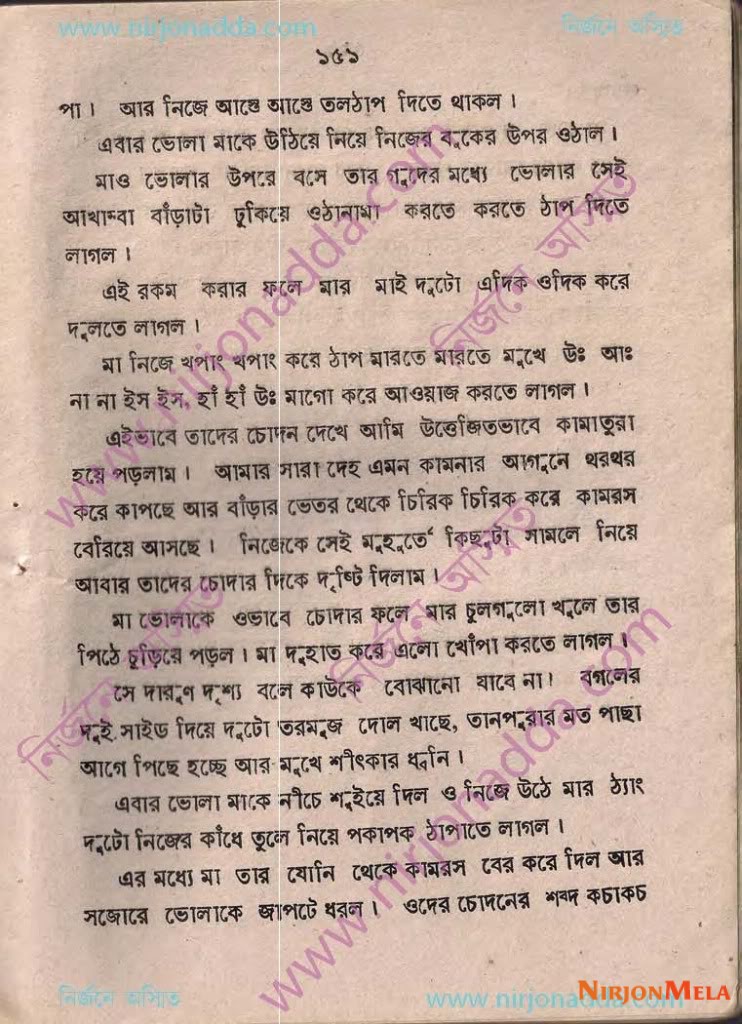 www.nirjonadda.com নির্জনে অস্মিত
১৫১
পা। আর নিজে আস্তে আস্তে তলঠাপ দিতে থাকল।
এবার ভোলা মাকে উঠিয়ে নিয়ে নিজের বুকের উপর ওঠাল।
মাও ভোলার উপরে বসে তার গুদের মধ্যে ভোলার সেই
আখাম্বা বাঁড়াটা ঢুকিয়ে ওঠানামা করতে করতে ঠাপ দিতে
লাগল।
এই রকম করার ফলে মার মাই দুটো এদিক ওদিক করে
দুলতে লাগল।
মা নিজে খপাং খপাং করে ঠাপ মারতে মারতে মুখে উঃ আঃ
না না ইস ইস, হাঁ হাঁ উঃ মাগো করে আওয়াজ করতে লাগল।
এইভাবে তাদের চোদন দেখে আমি উত্তেজিতভাবে কামাতুরা
হয়ে পড়লাম। আমার সারা দেহ এমন কামনার আগুনে থরথর
করে কাপছে আর বাঁড়ার ভেতর থেকে চিরিক চিরিক করে কামরস
বেরিয়ে আসছে। নিজেকে সেই মুহূর্তে কিছুটা সামলে নিয়ে
আবার তাদের চোদার দিকে দৃষ্টি দিলাম।
মা ভোলাকে ওভাবে চোদার ফলে মার চুলগুলো খুলে তার
পিঠে চুড়িয়ে পড়ল। মা দুহাত করে এলো খোঁপা করতে লাগল।
সে দারুণ দৃশ্য বলে কাউকে বোঝানো যাবে না। বগলের
দুই সাইড দিয়ে দুটো তরমুজ দোল খাছে, তানপুরার মত পাছা
আগে পিছে হচ্ছে আর মুখে শীৎকার ধ্বনি।
এবার ভোলা মাকে নীচে শুইয়ে দিল ও নিজে উঠে মার ঠ্যাং
দুটো নিজের কাঁধে তুলে নিয়ে পকাপক ঠাপাতে লাগল।
এর মধ্যে মা তার যোনি থেকে কামরস বের করে দিল আর
সজোরে ভোলাকে জাপটে ধরল। ওদের চোদনের শব্দ কচাকচ
www.nirjonadda.com নির্জনে অস্মিত
www.nirjonadda.com নির্জনে অস্মিত
নির্জনে অস্মিত www.nirjonadda.com
NIRJONMELA